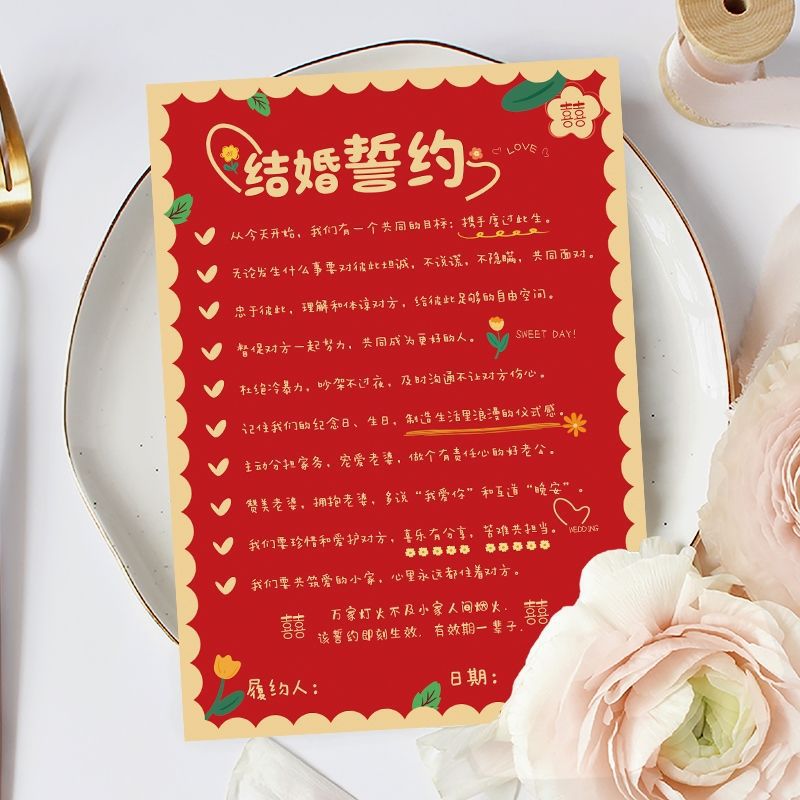 囍
结婚誓约
LOVE
从今天开始，我们有一个共同的目标：携手度过此生。
无论发生什么事要对彼此坦诚，不说谎，不隐瞒，共同面对。
忠于彼此，理解和体谅对方，给彼此足够的自由空间。
督促对方一起努力，共同成为更好的人。
SWEET DAY!
杜绝冷暴力，吵架不过夜，及时沟通不让对方伤心。
记住我们的纪念日、生日，制造生活里浪漫的仪式感。
主动分担家务，宠爱老婆，做个有责任心的好老公。
赞美老婆，拥抱老婆，多说“我爱你”和互道“晚安”。
我们要珍惜和爱护对方，喜乐有分享，苦难共担当。
WEDDING
我们要共筑爱的小家，心里永远都住着对方。
囍 万家灯火不及小家人间烟火. 囍
该誓约即刻生效. 有效期一辈子.
履约人： 日期：